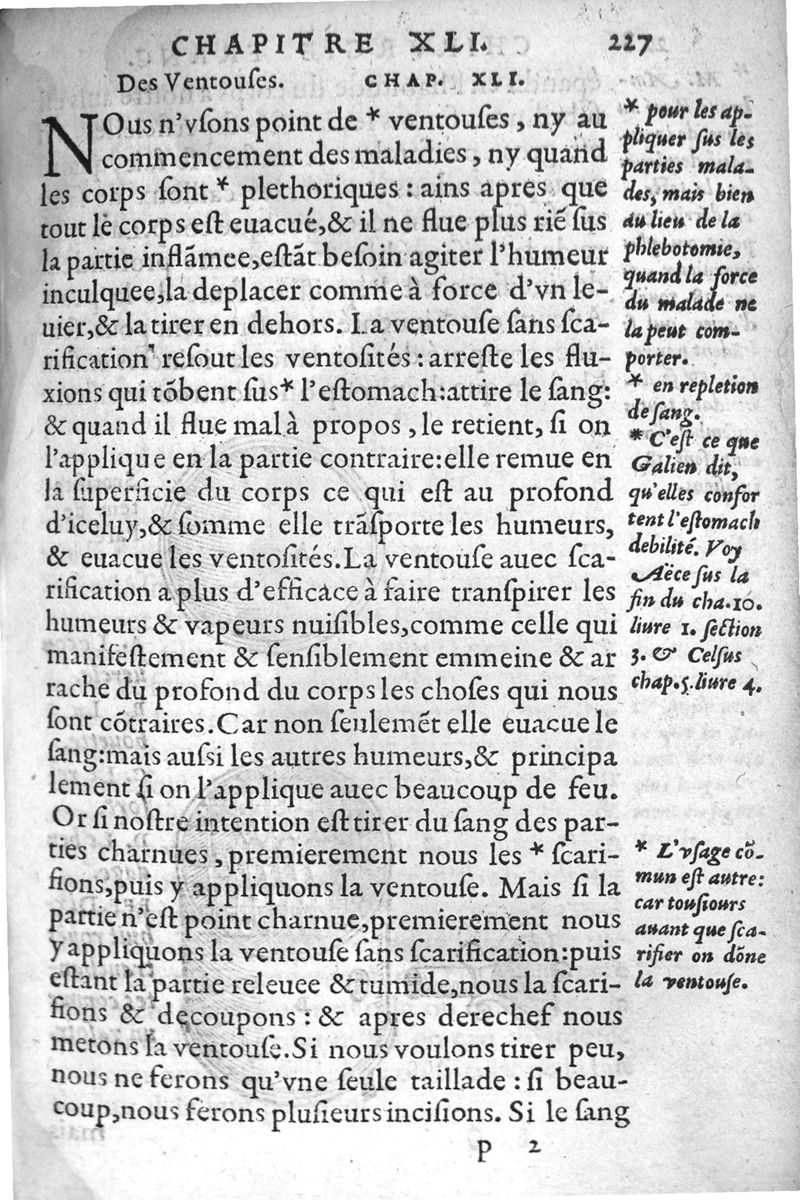 CHAPITRE XLI. 227
Des Ventouſes. CHAP. XLI.
NOus n'vſons point de * ventouſes, ny au
commencement des maladies, ny quand
les corps ſont * plethoriques : ains apres que
tout le corps eſt euacué,& il ne flue plus riẽ ſus
la partie inflãmee,eſtãt beſoin agiter l'humeur
inculquee,la deplacer comme à force d'vn le-
uier,& la tirer en dehors. La ventouſe ſans ſca-
rification reſout les ventoſités : arreſte les flu-
xions qui tõbent ſus* l'eſtomach:attire le ſang:
& quand il flue mal à propos, le retient, ſi on
l'applique en la partie contraire:elle remue en
la ſuperficie du corps ce qui eſt au profond
d'iceluy,& ſomme elle trãſporte les humeurs,
& euacue les ventoſités.La ventouſe auec ſca-
rification a plus d'efficace à faire tranſpirer les
humeurs & vapeurs nuiſibles,comme celle qui
manifeſtement & ſenſiblement emmeine & ar
rache du profond du corps les choſes qui nous
ſont cõtraires.Car non ſeulemẽt elle euacue le
ſang:mais auſsi les autres humeurs,& principa
lement ſi on l'applique auec beaucoup de feu.
Or ſi noſtre intention eſt tirer du ſang des par-
ties charnues, premierement nous les * ſcari-
fions,puis y appliquons la ventouſe. Mais ſi la
partie n'eſt point charnue,premierement nous
y appliquons la ventouſe ſans ſcarification:puis
eſtant la partie releuee & tumide,nous la ſcari-
fions & decoupons : & apres derechef nous
metons la ventouſe.Si nous voulons tirer peu,
nous ne ferons qu'vne ſeule taillade : ſi beau-
coup,nous ferons pluſieurs inciſions. Si le ſang
* pour les ap-
pliquer ſus les
parties mala-
des, mais bien
au lieu de la
phlebotomie,
quand la force
du malade ne
la peut com-
porter.
* en repletion
de ſang.
* C'eſt ce que
Galien dit,
qu'elles confor
tent l'eſtomach
debilité. Voy
Aëce ſus la
fin du cha.10.
liure 1. ſection
3. & Celſus
chap.5.liure 4.
* L'vſage cõ-
mun eſt autre:
car touſiours
auant que ſca-
rifier on dõne
la ventouſe.
P 2